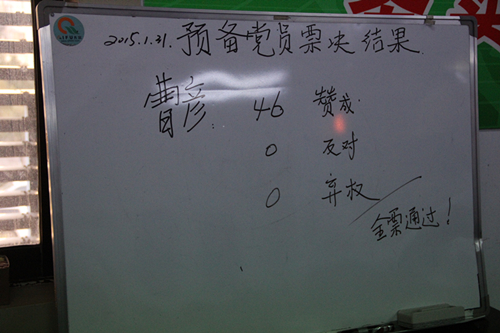 2015.1.21. 预备党员票决结果
曹彦: 46 赞成.
0 反对
0 弃权
全票通过!